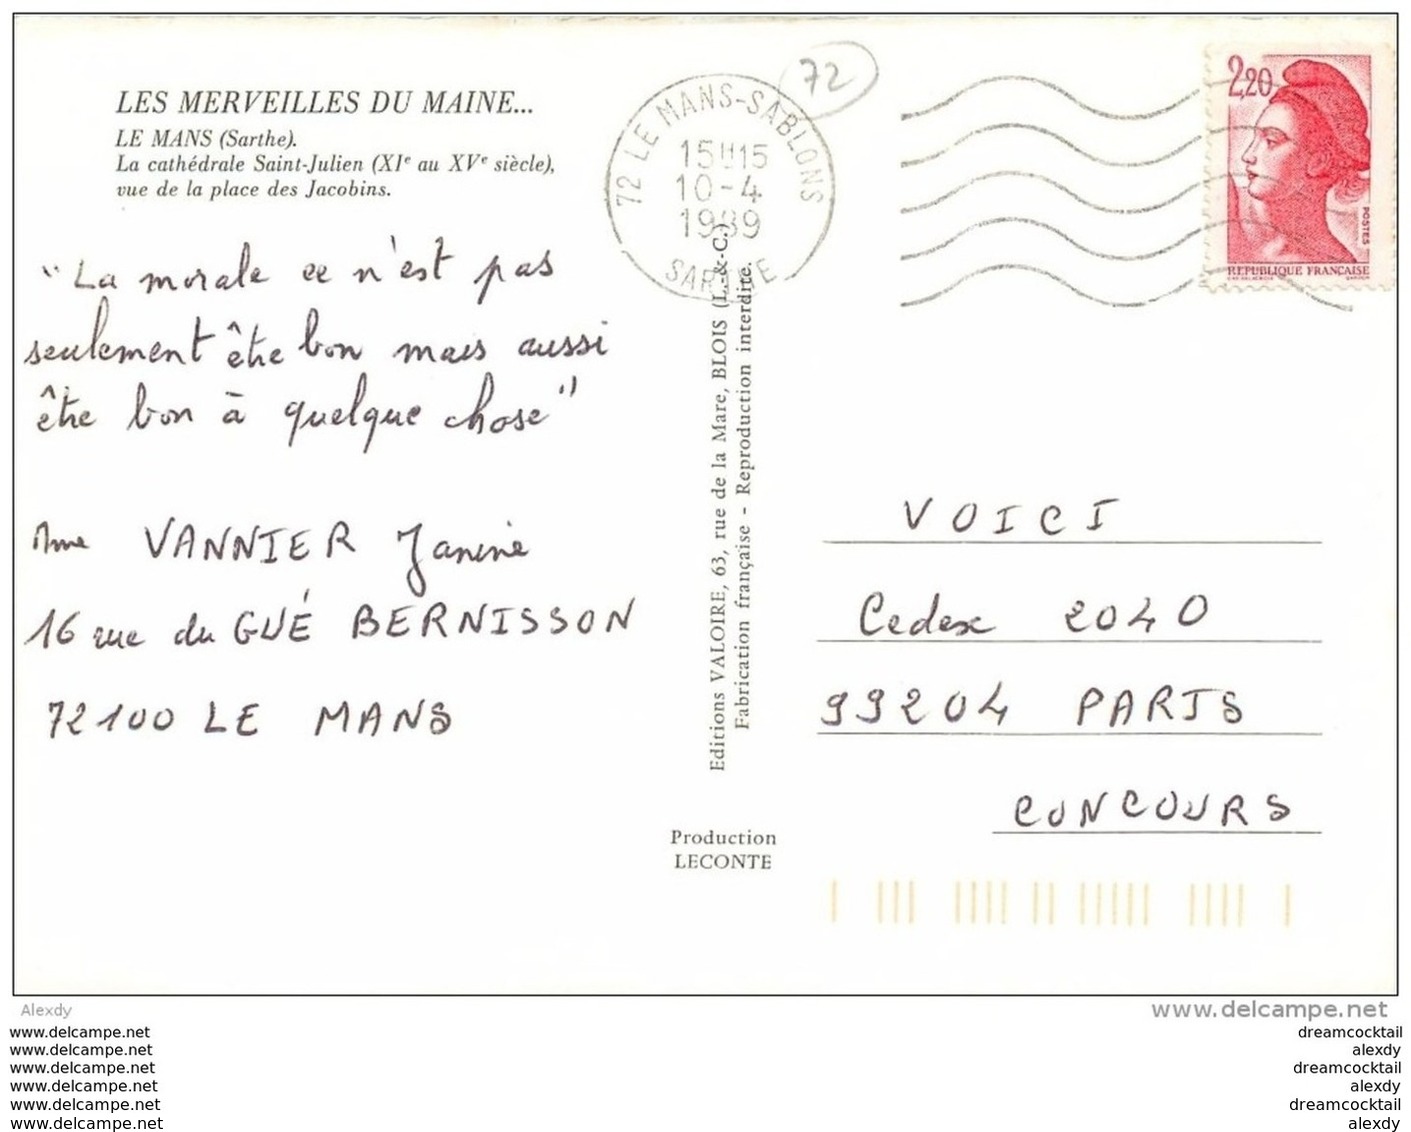 LES MERVEILLES DU MAINE...
LE MANS (Sarthe).
La cathédrale Saint-Julien (XIe au XVe siècle),
vue de la place des Jacobins.
"La morale ce n'est pas
seulement être bon mais aussi
être bon à quelque chose"
Mme VANNIER Janine
16 rue du GUÉ BERNISSON
72100 LE MANS
72 LE MANS-SABLONS
15H15
10-4
1989
SARTHE
72
2,20
POSTES
REPUBLIQUE FRANÇAISE
Editions VALOIRE, 63, rue de la Mare, BLOIS (L.-&-C.)
Fabrication française - Reproduction interdite.
Production
LECONTE
VOICI
Cedex 2040
99204 PARIS
CONCOURS
Alexdy
www.delcampe.net
www.delcampe.net
www.delcampe.net
www.delcampe.net
www.delcampe.net
www.delcampe.net
www.delcampe.net
dreamcocktail
alexdy
dreamcocktail
alexdy
dreamcocktail
alexdy